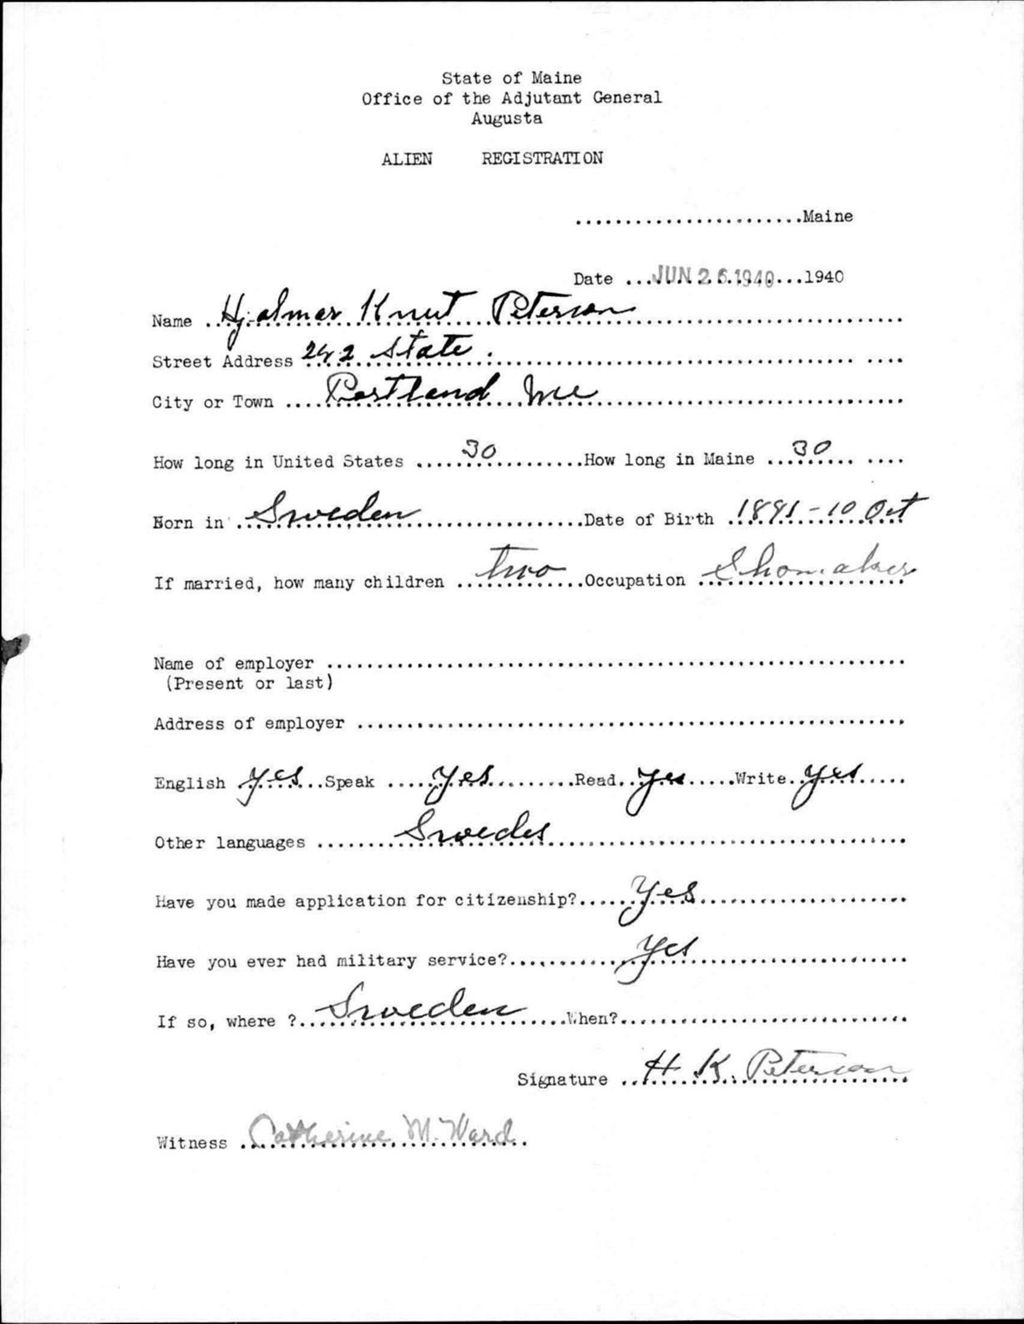 State of Maine
Office of the Adjutant General
Augusta
ALIEN REGISTRATION
.......................Maine
Date ...JUN 26.1940...1940
Name ..Hjalmar Knut Peterson
Street Address 242 State
City or Town ....Portland Me
How long in United States ....30...........How long in Maine ...30......
Born in ....Sweden.................Date of Birth ..1891-10 Oct
If married, how many children ...two.....Occupation ..Shomaker
Name of employer ..........................................................
(Present or last)
Address of employer .......................................................
English Yes...Speak ....Yes.........Read..Yes.....Write..Yes.....
Other languages .........Swedes....................................
Have you made application for citizenship?.....Yes.....................
Have you ever had military service?............Yes......................
If so, where ?...Sweden.......When?.............................
Signature ..H. K. Peterson
Witness ..Catherine M. Ward..